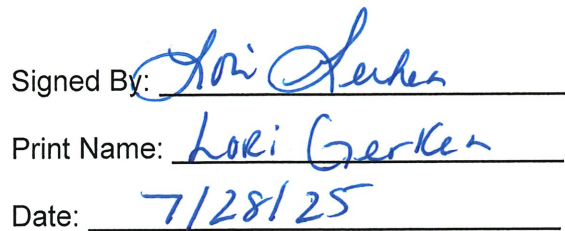 Signed By: Lori Gerken
Print Name: Lori Gerken
Date: 7/28/25